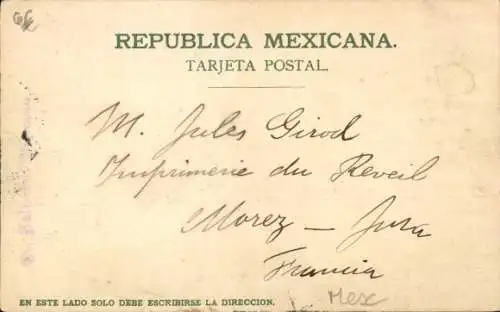 66
REPUBLICA MEXICANA.
TARJETA POSTAL.
M. Jules Girod
Imprimerie du Reveil
Morez – Jura
Francia
EN ESTE LADO SOLO DEBE ESCRIBIRSE LA DIRECCION.
Mex